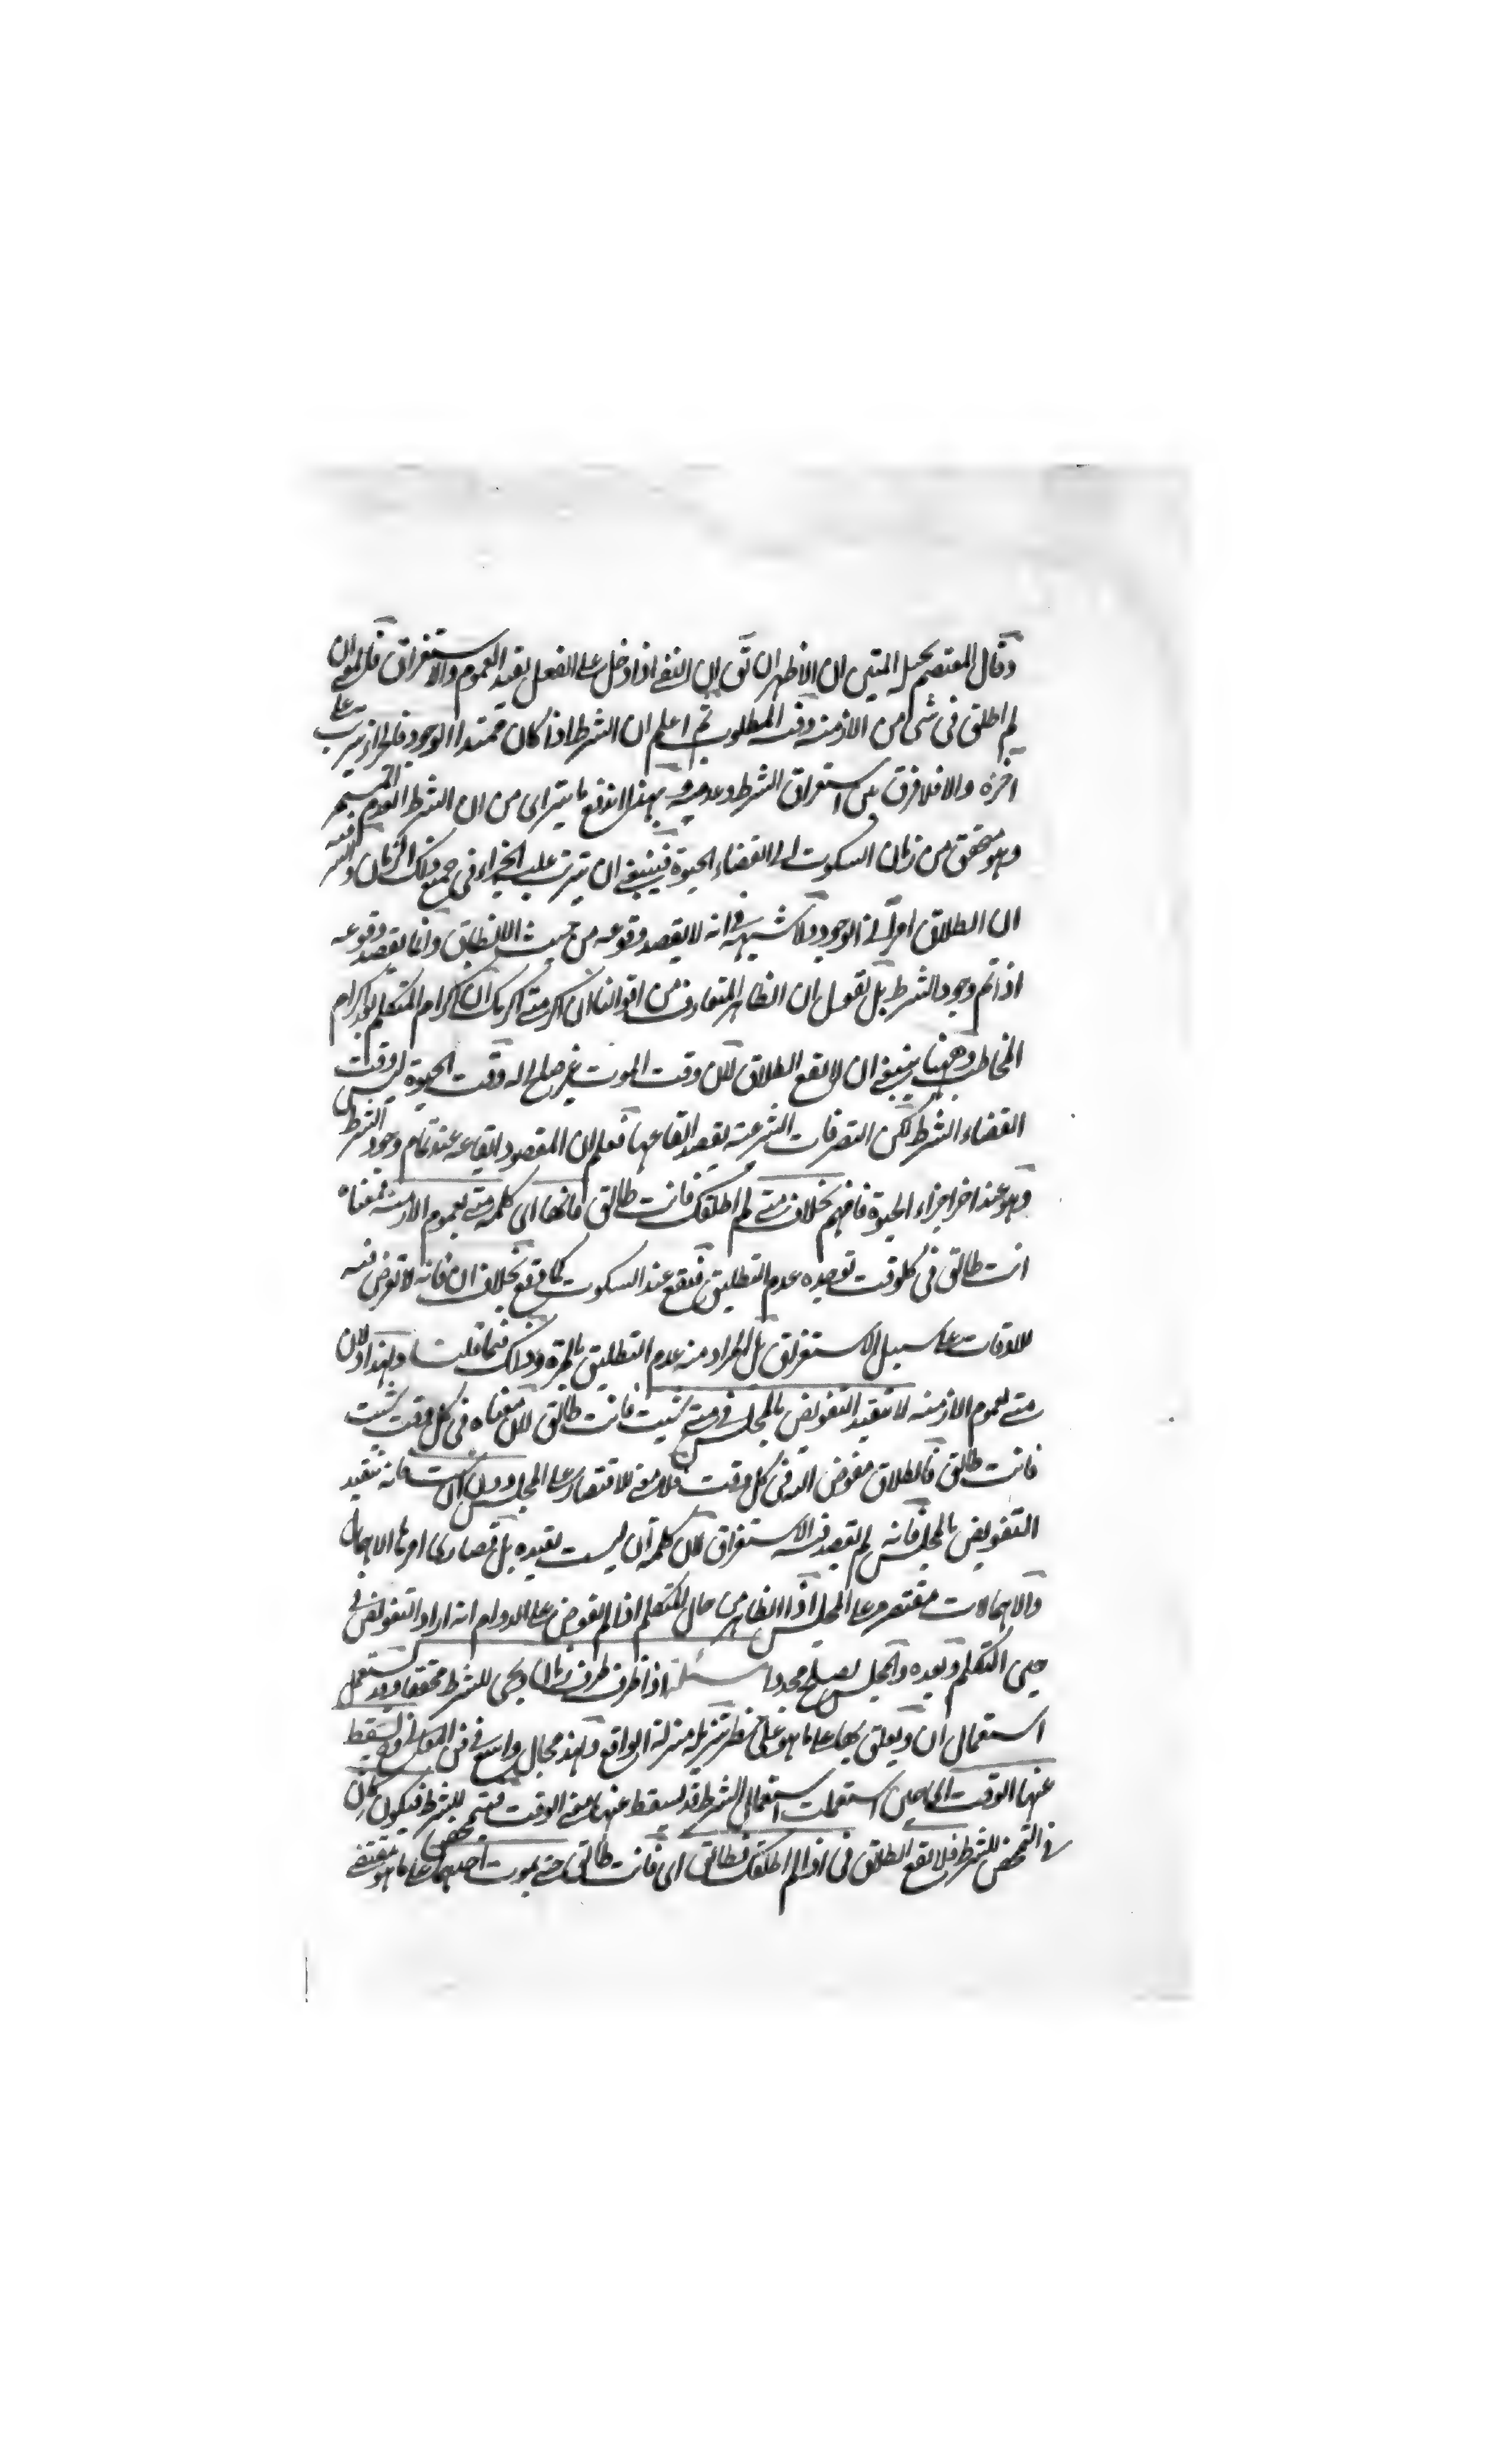 وقال المعتصم بحبل المتين ان الاظهر ان يق ان النفى اذا دخل على الفعل يفيد العموم والاستغراق فالمعنى ان
لم اطلق فى شى من الازمنة وفيه المطلوب ثم اعلم ان الشرط اذا كان ممتدا الوجود فالجزاء يترتب على
اخره والا فلا فرق بين استغراق الشرط وعدمه وبهذا اندفع ما يترأى من ان الشرط العدم المستمر
وهو متحقق من زمان السكوت الى انقضاء الحيوة فينبغى ان يترتب عليه الجزاء فى جميع ذلك الزمان والسر فيه
ان الطلاق امر آنى الوجود ولا شبهة فى انه لا يقصد وقوعه من حيث الانطباق وانما يقصد وقوعه
اذا تم وجود الشرط بل نقول ان الظاهر المتعارف من اقوالنا ان اكرمتنى اكرمك ان اكرام المتكلم بعد اكرام
المخاطب وههنا ينبغى ان لا يقع الطلاق لان وقت الموت غير صالح له ووقت الحيوة ليس وقت
انقضاء الشرط لكن التصرفات الشرعية يقصد ايقاعها فعلم ان المقصود ايقاعه عند تمام وجود الشرط
وهو عند اخر اجزاء الحيوة فافهم بخلاف متى لم اطلقك فانت طالق فانها اى كلمة متى لعموم الازمنة فمعناه
انت طالق فى كل وقت توجد عدم التطليق فيقع عند السكوت كما وقع بخلاف ان فانه لا تعرض فيه
للاوقات على سبيل الاستغراق بل المراد منه عدم التطليق بالمرة وذلك فيما قلنا ولهذا لان
متى لعموم الازمنة لا يتقيد التفويض بالمجلس فى متى شئت فانت طالق لان معناه فى كل وقت شئت
فانت طالق فالطلاق مفوض اليه فى كل وقت فلا معنى للاقتصار على المجلس دون ان شئت فانه يتقيد
التفويض بالمجلس فانه لم يقصد فيه الاستغراق لان كلمة ان ليست تفيده بل قصارى امرها الاهمال
والاهمالات مقتصرة على المجلس اذ الظاهر من حال المتكلم اذا لم يفوض على الدوام انه اراد التفويض فى
حين التكلم وبعده والمجلس يصلح محددا مسئلة اذا ظرف ظرف زمان ويجى للشرط محققا وقد يستعمل
استعمال ان ويعلق بها على ما هو على خطر تنزيله منزلة الواقع ولهذا مجال واسع فى فن المعانى وح يسقط
عنها الوقت اى حين استعملت استعمال الشرط قد يسقط عنها معنى الوقت فيتمحض للشرط فيكون كان
فى التمحض للشرط فلا يقع الطلاق فى اذا لم اطلقك فطالق اى فانت طالق حتى يموت احدهما على ما هو مقتضى